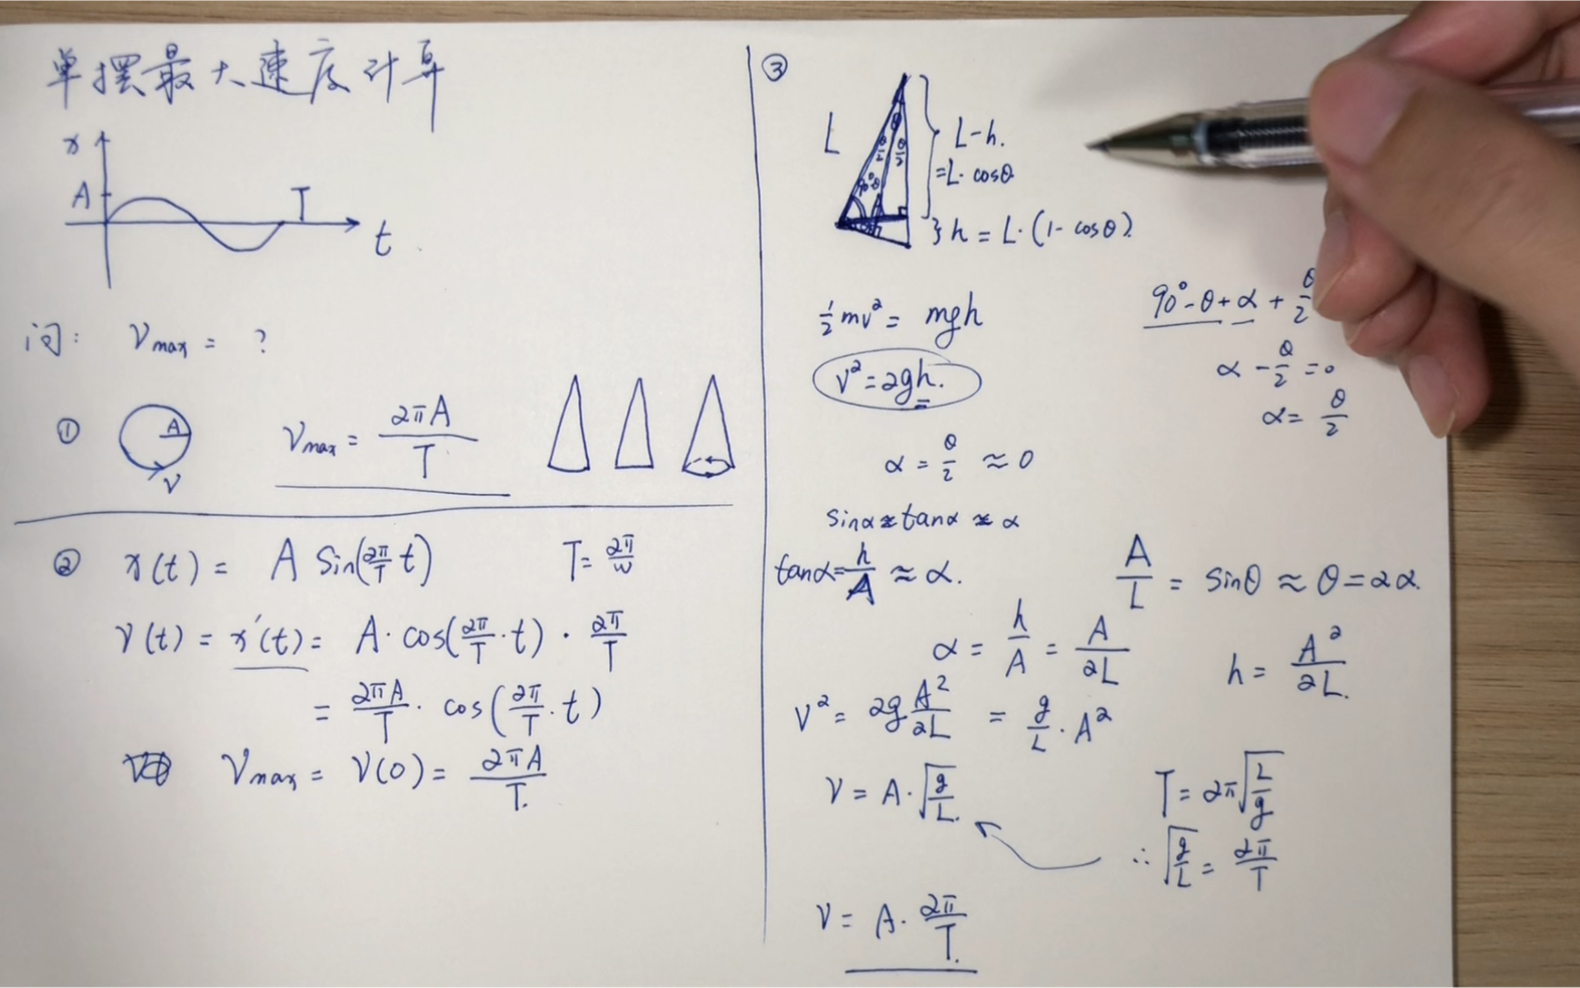 单摆最大速度计算
x
A
T
t
问: Vmax = ?
① A V Vmax = 2πA/T
② x(t) = A Sin(2π/T t) T = 2π/w
V(t) = x'(t) = A · cos(2π/T · t) · 2π/T
= 2πA/T · cos(2π/T · t)
Vmax = V(0) = 2πA/T.
③
L
L-h.
=L· cosθ
} h = L·(1- cosθ)
½mv² = mgh
V²=2gh.
90°-θ+α+θ/2
α - θ/2 = 0
α = θ/2
α = θ/2 ≈ 0
Sinα ≈ tanα ≈ α
tanα = h/A ≈ α.
A/L = sinθ ≈ θ = 2α.
α = h/A = A/2L
h = A²/2L.
V² = 2g A²/2L = g/L · A²
V = A·√(g/L).
T = 2π√(L/g)
∴ √(g/L) = 2π/T
V = A· 2π/T.